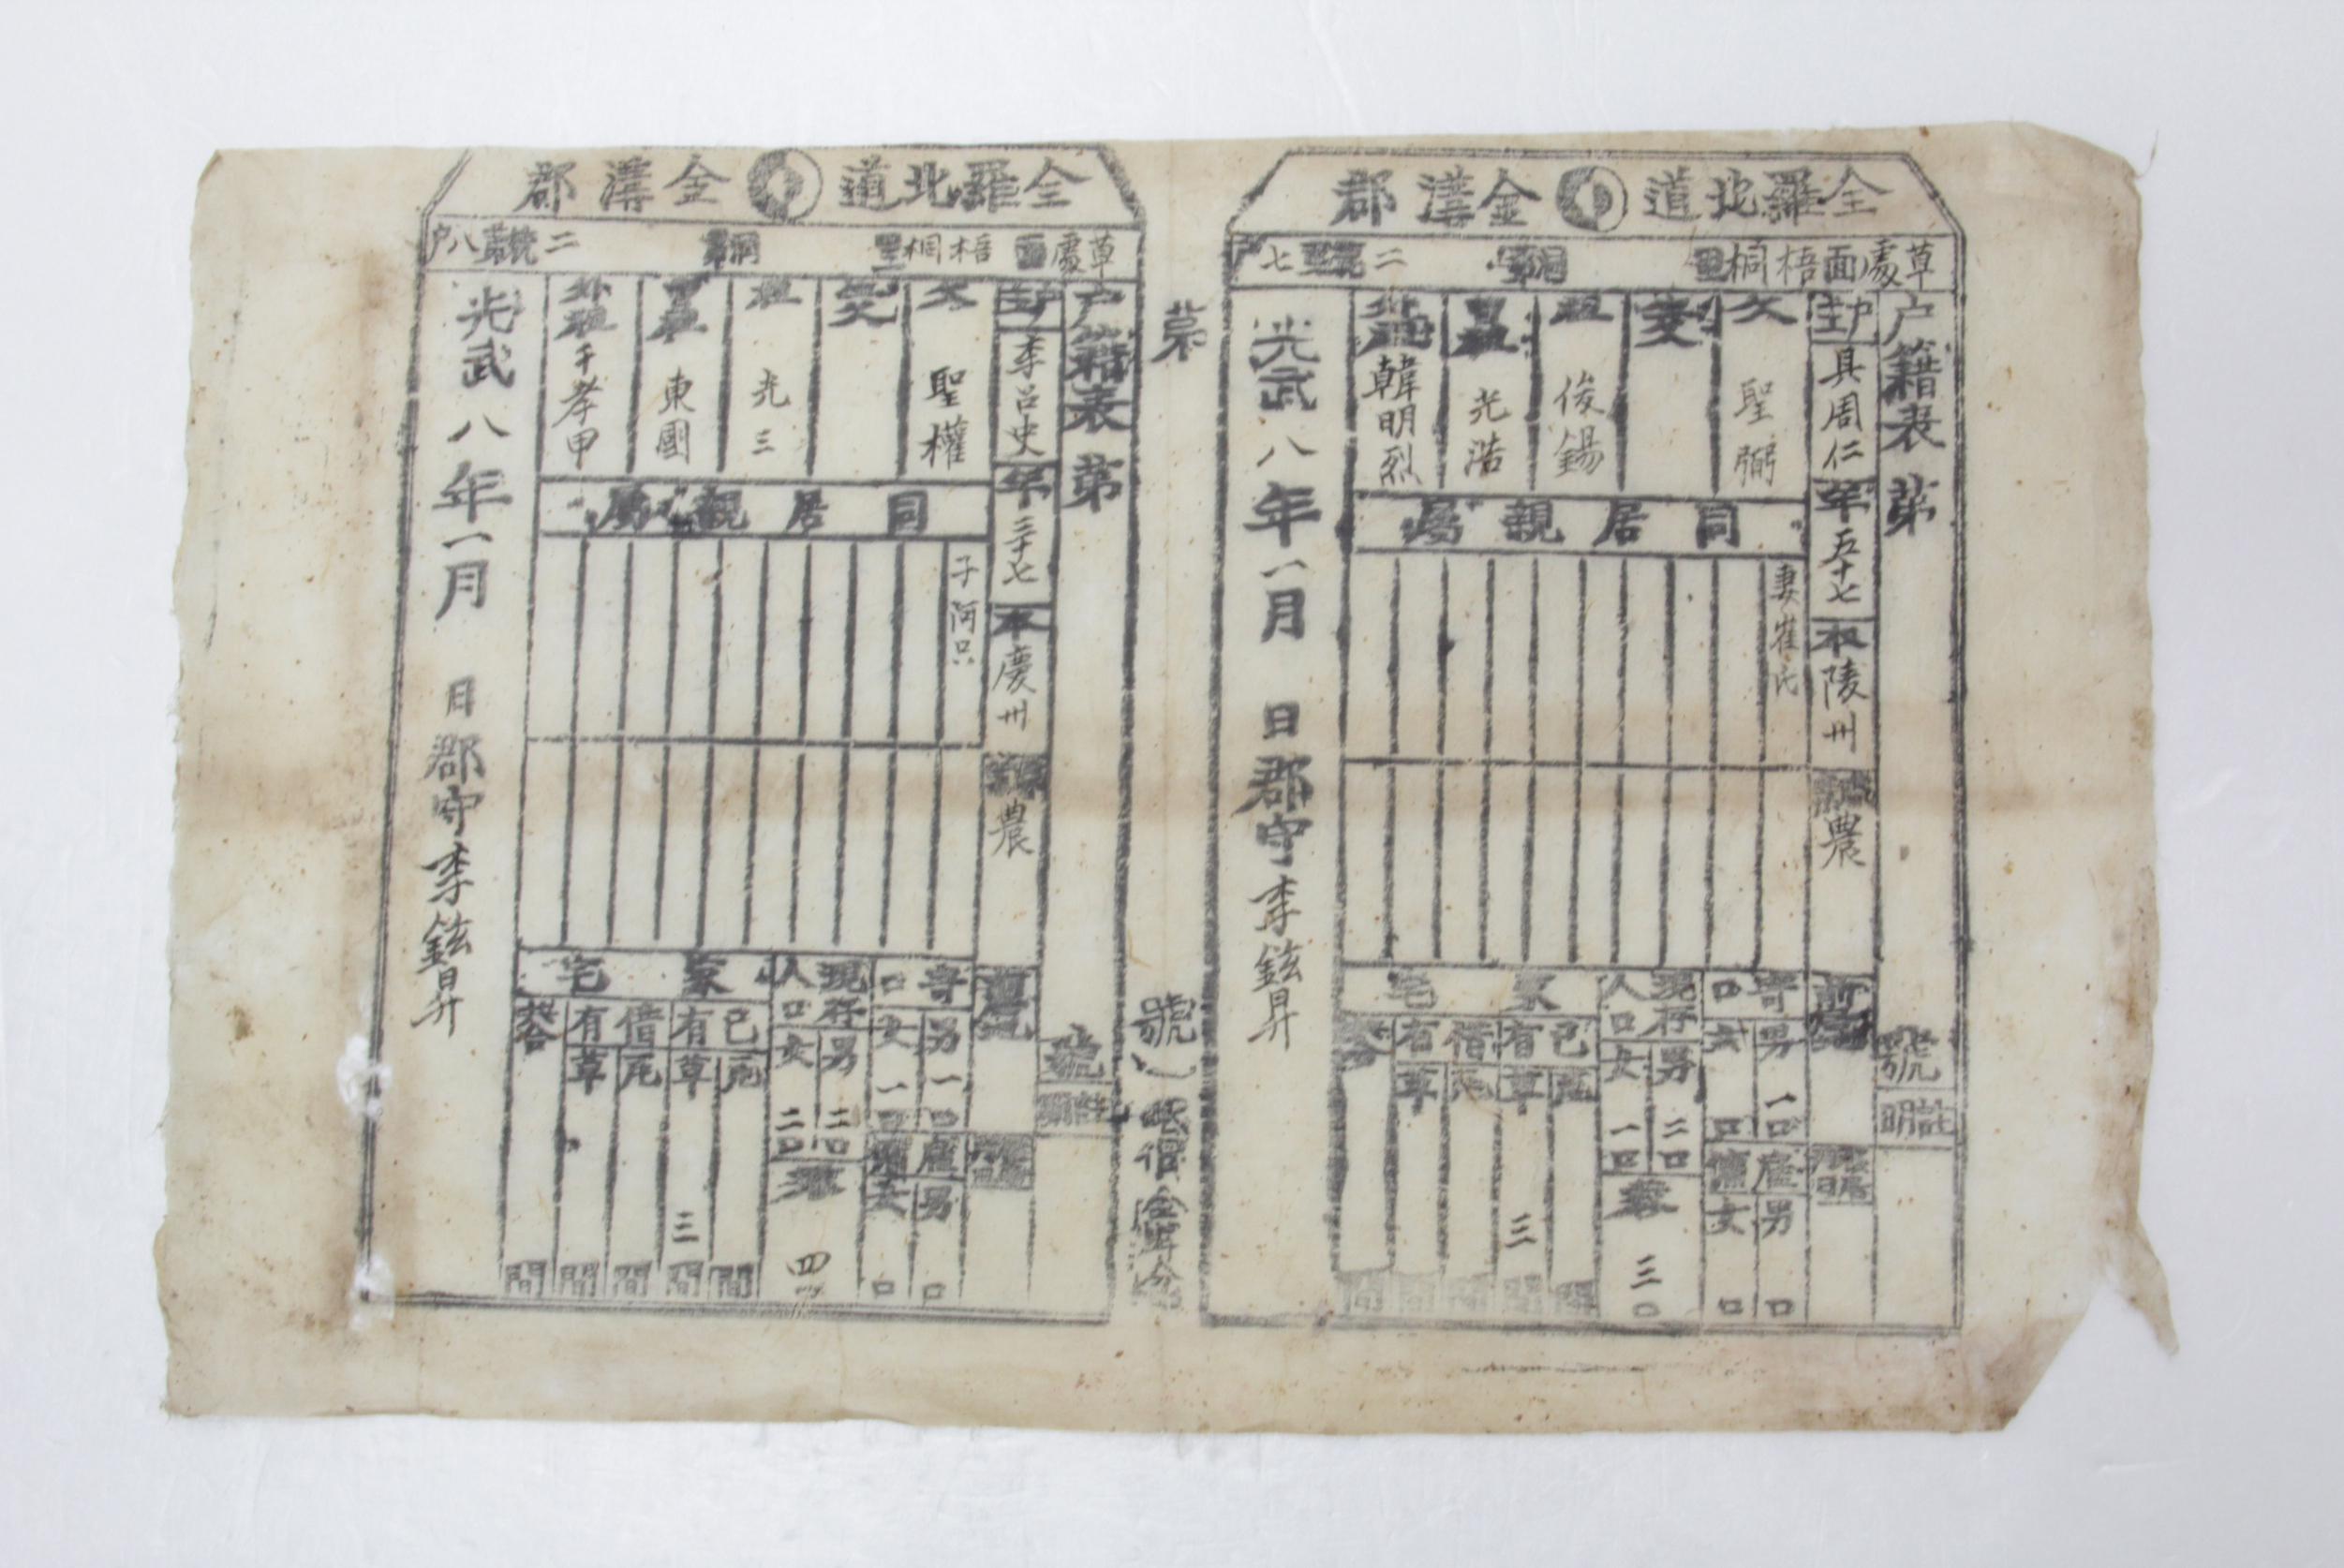 全羅北道 金溝郡
草處面 梧桐里 洞 二統 七戶
戶籍表 第 號
證明
戶主 具周仁
年 五十七
本 陵州
農
父 聖弼
祖 俊錫
曾祖 光浩
外祖 韓明烈
同居親屬
妻 崔氏
寄口 男 一口 女 口
雇傭 男 口 女 口
現存人口 男 二口 女 一口
三口
家宅
己有 瓦 草 三
借有 瓦 草
光武八年一月 日 郡守 李鉉昇
第 號
全羅北道 金溝郡
草處面 梧桐里 洞 二統 八戶
戶籍表 第 號
戶主 李召史
年 三十七
本 慶州
農
父 聖權
祖 光三
曾祖 東國
外祖 千孝甲
同居親屬
子 河只
寄口 男 一口 女 一口
雇傭 男 口 女 口
現存人口 男 二口 女 二口
四口
家宅
己有 瓦 間 草 三間
借有 瓦 間 草 間
共合 間
光武八年一月 日 郡守 李鉉昇